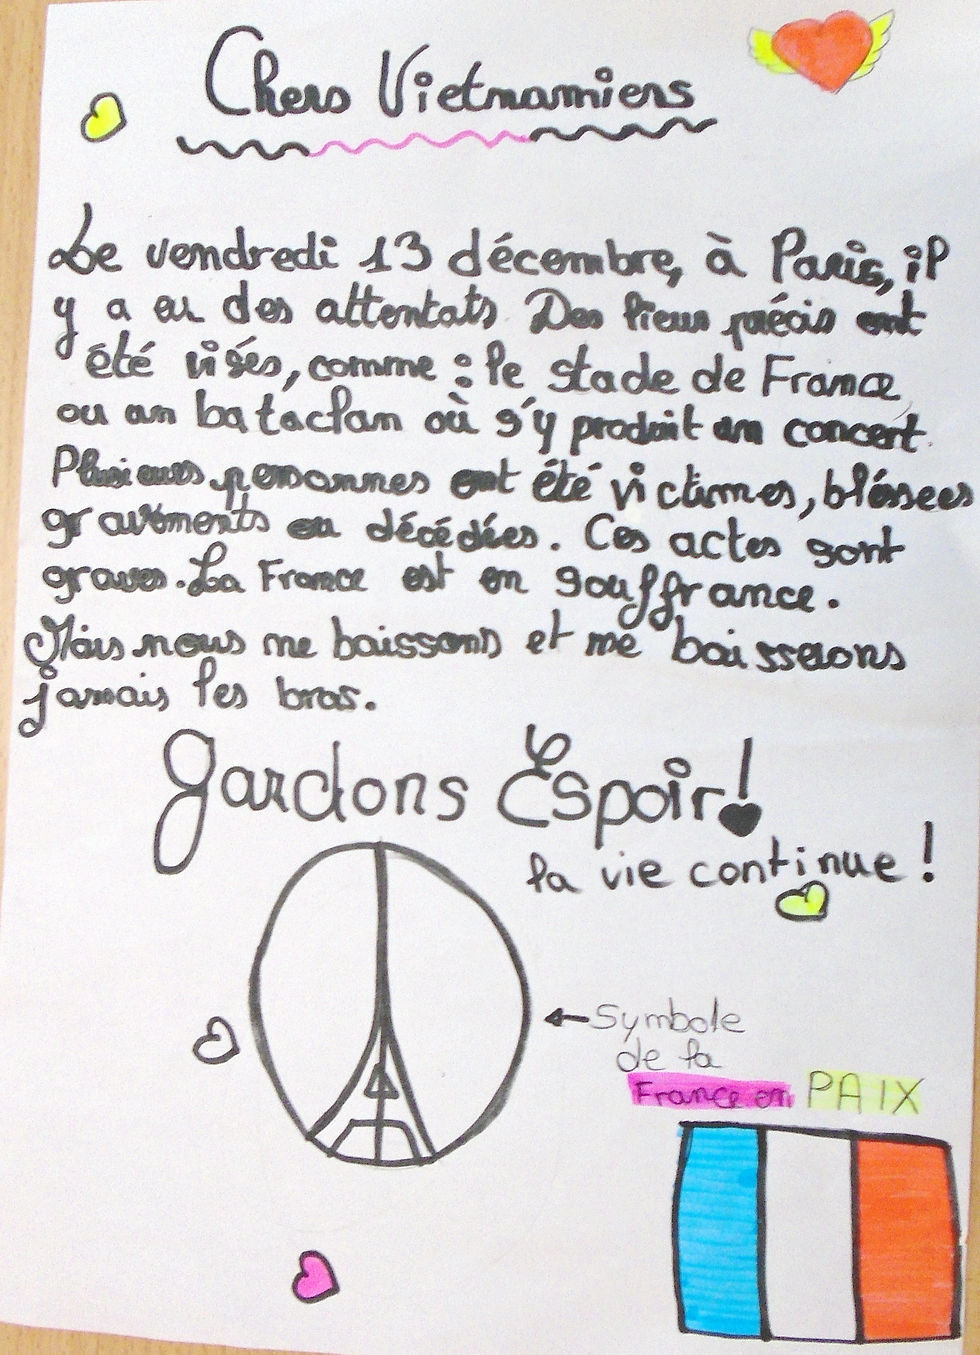 Chers Vietnamiens
Le vendredi 13 décembre, à Paris, il
y a eu des attentats. Des lieux précis ont
été visés, comme : le stade de France
ou un bataclan où s'y produit un concert.
Plusieurs personnes ont été victimes, bléssées
gravements ou décédées. Ces actes sont
graves. La France est en souffrance.
Mais nous ne baissons et ne baisserons
jamais les bras.
gardons Espoir !
la vie continue !
Symbole
de la
France en PAIX